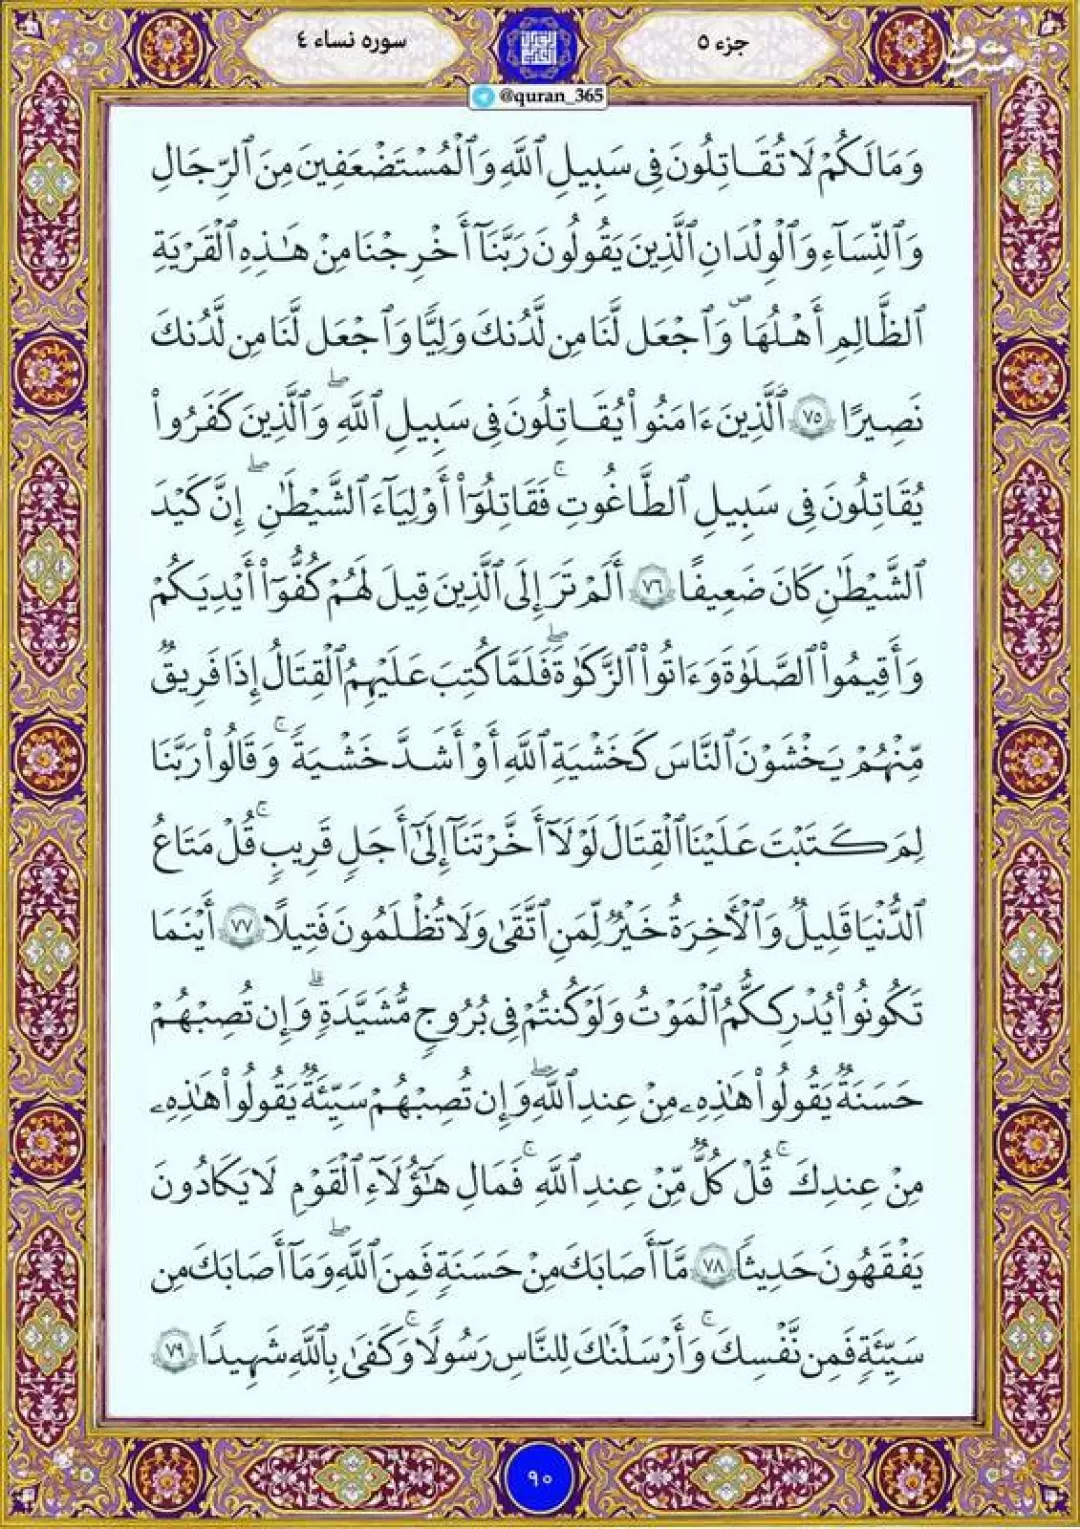 جزء ٥
سوره نساء ٤
مشرق
@quran_365
وَمَالَكُمْ لَا تُقَـٰتِلُونَ فِى سَبِيلِ ٱللَّهِ وَٱلْمُسْتَضْعَفِينَ مِنَ ٱلرِّجَالِ
وَٱلنِّسَآءِ وَٱلْوِلْدَٰنِ ٱلَّذِينَ يَقُولُونَ رَبَّنَآ أَخْرِجْنَا مِنْ هَـٰذِهِ ٱلْقَرْيَةِ
ٱلظَّالِمِ أَهْلُهَا ۖ وَٱجْعَل لَّنَا مِن لَّدُنكَ وَلِيًّا وَٱجْعَل لَّنَا مِن لَّدُنكَ
نَصِيرًا ٧٥ ٱلَّذِينَ ءَامَنُوا۟ يُقَـٰتِلُونَ فِى سَبِيلِ ٱللَّهِ ۖ وَٱلَّذِينَ كَفَرُوا۟
يُقَـٰتِلُونَ فِى سَبِيلِ ٱلطَّـٰغُوتِ ۚ فَقَـٰتِلُوٓا۟ أَوْلِيَآءَ ٱلشَّيْطَـٰنِ ۖ إِنَّ كَيْدَ
ٱلشَّيْطَـٰنِ كَانَ ضَعِيفًا ٧٦ أَلَمْ تَرَ إِلَى ٱلَّذِينَ قِيلَ لَهُمْ كُفُّوٓا۟ أَيْدِيَكُمْ
وَأَقِيمُوا۟ ٱلصَّلَوٰةَ وَءَاتُوا۟ ٱلزَّكَوٰةَ ۖ فَلَمَّا كُتِبَ عَلَيْهِمُ ٱلْقِتَالُ إِذَا فَرِيقٌ
مِّنْهُمْ يَخْشَوْنَ ٱلنَّاسَ كَخَشْيَةِ ٱللَّهِ أَوْ أَشَدَّ خَشْيَةً ۚ وَقَالُوا۟ رَبَّنَا
لِمَ كَتَبْتَ عَلَيْنَا ٱلْقِتَالَ لَوْلَآ أَخَّرْتَنَآ إِلَىٰٓ أَجَلٍ قَرِيبٍ ۗ قُلْ مَتَـٰعُ
ٱلدُّنْيَا قَلِيلٌ وَٱلْـَٔاخِرَةُ خَيْرٌ لِّمَنِ ٱتَّقَىٰ وَلَا تُظْلَمُونَ فَتِيلًا ٧٧ أَيْنَمَا
تَكُونُوا۟ يُدْرِككُّمُ ٱلْمَوْتُ وَلَوْ كُنتُمْ فِى بُرُوجٍ مُّشَيَّدَةٍ ۗ وَإِن تُصِبْهُمْ
حَسَنَةٌ يَقُولُوا۟ هَـٰذِهِۦ مِنْ عِندِ ٱللَّهِ ۖ وَإِن تُصِبْهُمْ سَيِّئَةٌ يَقُولُوا۟ هَـٰذِهِۦ
مِنْ عِندِكَ ۚ قُلْ كُلٌّ مِّنْ عِندِ ٱللَّهِ ۖ فَمَالِ هَـٰٓؤُلَآءِ ٱلْقَوْمِ لَا يَكَادُونَ
يَفْقَهُونَ حَدِيثًا ٧٨ مَّآ أَصَابَكَ مِنْ حَسَنَةٍ فَمِنَ ٱللَّهِ ۖ وَمَآ أَصَابَكَ مِن
سَيِّئَةٍ فَمِن نَّفْسِكَ ۚ وَأَرْسَلْنَـٰكَ لِلنَّاسِ رَسُولًا ۚ وَكَفَىٰ بِٱللَّهِ شَهِيدًا ٧٩
٩٠